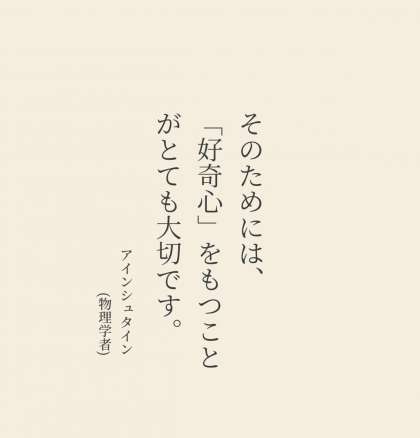 そのためには、
「好奇心」をもつこと
がとても大切です。
アインシュタイン
(物理学者)